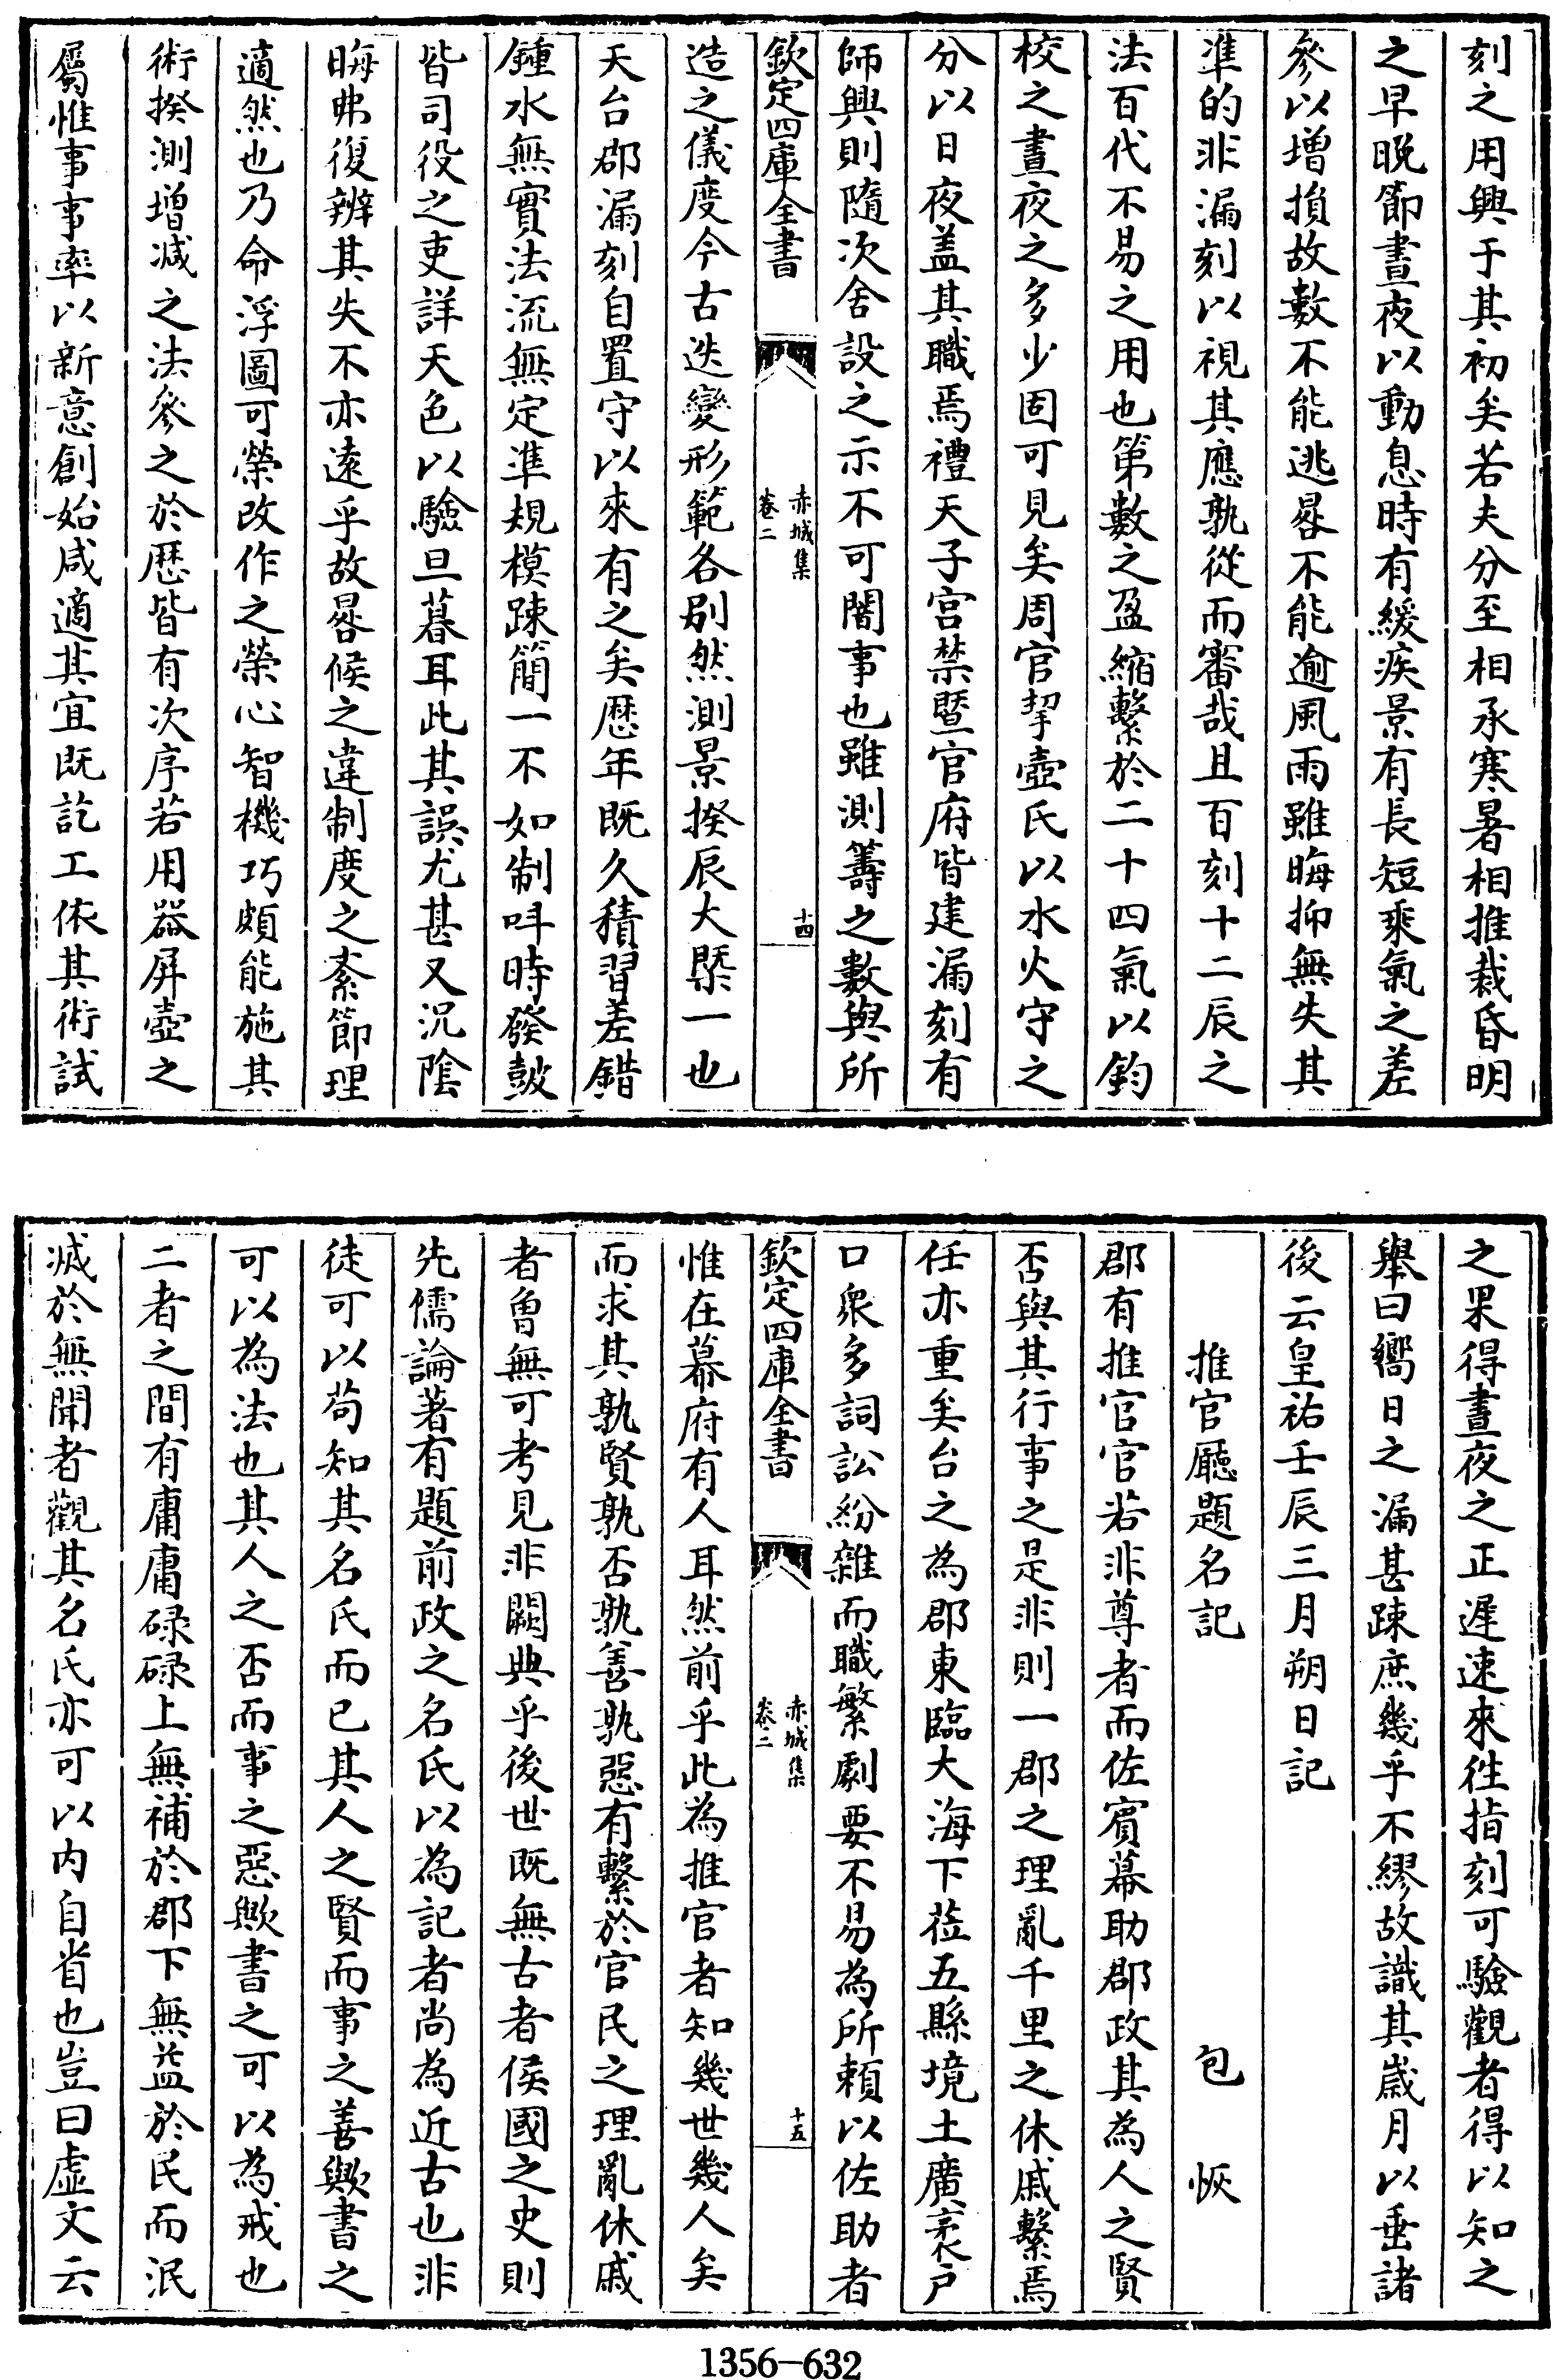 刻之用興于其初矣若夫分至相承寒暑相推裁昏明
之早晚節晝夜以動息時有緩疾景有長短乘氣之差
參以增損故數不能逃晷不能逾風雨雖晦抑無失其
準的非漏刻以視其應孰從而審哉且百刻十二辰之
法百代不易之用也第數之盈縮繫於二十四氣以鈞
校之晝夜之多少固可見矣周官挈壺氏以水火守之
分以日夜盖其職焉禮天子宮禁暨官府皆建漏刻有
師興則隨次舍設之示不可闇事也雖測籌之數與所
欽定四庫全書
赤城集
卷二
十四
造之儀度今古迭變形範各别然測景揆辰大槩一也
天台郡漏刻自置守以來有之矣歴年既久積習差錯
鍾水無實法流無定準規模踈簡一不如制呌時發皷
皆司役之吏詳天色以驗旦暮耳此其誤尤甚又况陰
晦弗復辨其失不亦遠乎故晷候之違制度之紊節理
適然也乃命浮圖可榮改作之榮心智機巧頗能施其
術揆測增减之法參之於歴皆有次序若用器屏壺之
屬惟事事率以新意創始咸適其宜既訖工依其術試
之果得晝夜之正遲速來徃指刻可驗觀者得以知之
舉曰嚮日之漏甚踈庶幾乎不繆故識其歲月以垂諸
後云皇祐壬辰三月朔日記
推官廳題名記 包恢
郡有推官官若非尊者而佐賓幕助郡政其為人之賢
否與其行事之是非則一郡之理亂千里之休戚繫焉
任亦重矣台之為郡東臨大海下蒞五縣境土廣袤戸
口衆多詞訟紛雜而職繁劇要不易為所賴以佐助者
欽定四庫全書
赤城集
卷二
十五
惟在幕府有人耳然前乎此為推官者知幾世幾人矣
而求其孰賢孰否孰善孰惡有繫於官民之理亂休戚
者曾無可考見非闕典乎後世既無古者侯國之史則
先儒論著有題前政之名氏以為記者尚為近古也非
徒可以苟知其名氏而已其人之賢而事之善歟書之
可以為法也其人之否而事之惡歟書之可以為戒也
二者之間有庸庸碌碌上無補於郡下無益於民而泯
滅於無聞者觀其名氏亦可以内自省也豈曰虚文云
1356-632